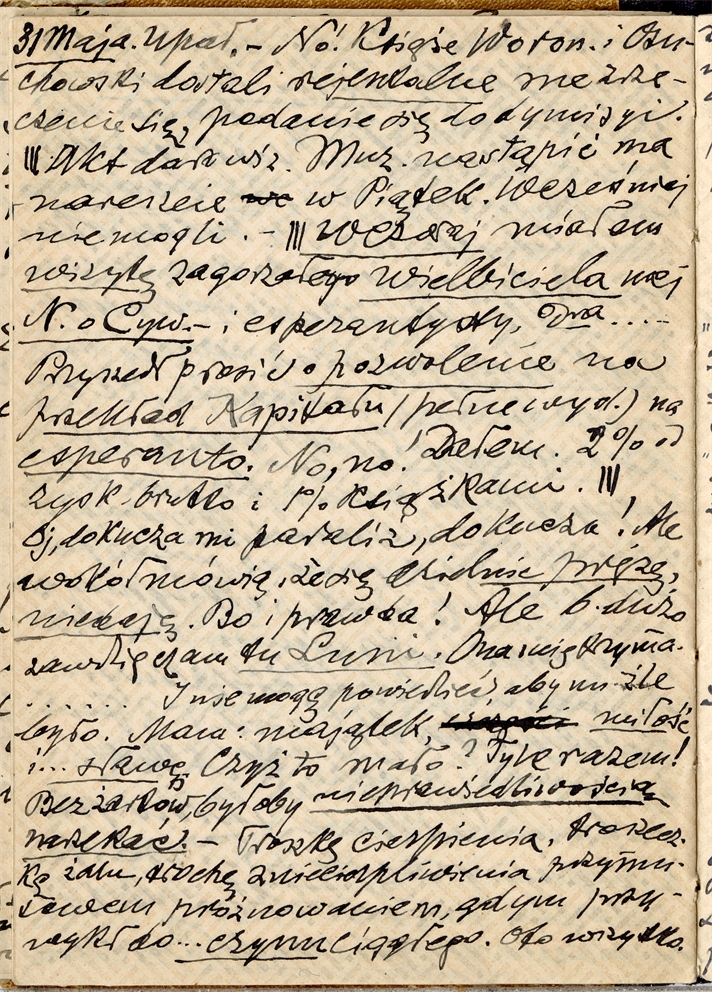 31 Maja. Upał. – No! Księże Woron. i Osu-
chowski dostali rejentalne me zrze-
czenie się, podanie się do dymisyi.
||| Akt darowiz. Muz. nastąpić ma
nareszcie w Piątek. Wcześniej
nie mogli. – ||| Wczoraj miałem
wizytę zagorzałego wielbiciela mej
N. o Cyw. – i esperantysty,
Przyszedł prosić o pozwolenie na
przekład Kapitału (pełne wyd.) na
esperanto. No, no! Dałem. 2% od
zysk. brutto i 1% książkami. |||
Oj, dokucza mi paraliż, dokucza! Ale
wokół mówią, że się dzielnie prężę,
nie dają. Bo i prawda! Ale b. dużo
zawdzięczam tu Luni. Ona mię trzyma.
....... I nie mogę powiedzieć, aby mi źle
było. Mam: majątek, miłość
i... sławę. Czyż to mało? Tyle razem!
Bez żartów, byłoby niesprawiedliwością
narzekać. – Troszkę cierpienia, troszecz-
kę żalu, trochę zniecierpliwienia przymu-
sowem próżnowaniem, gdym przy-
wykł do... czynu ciągłego. Oto wszystko.